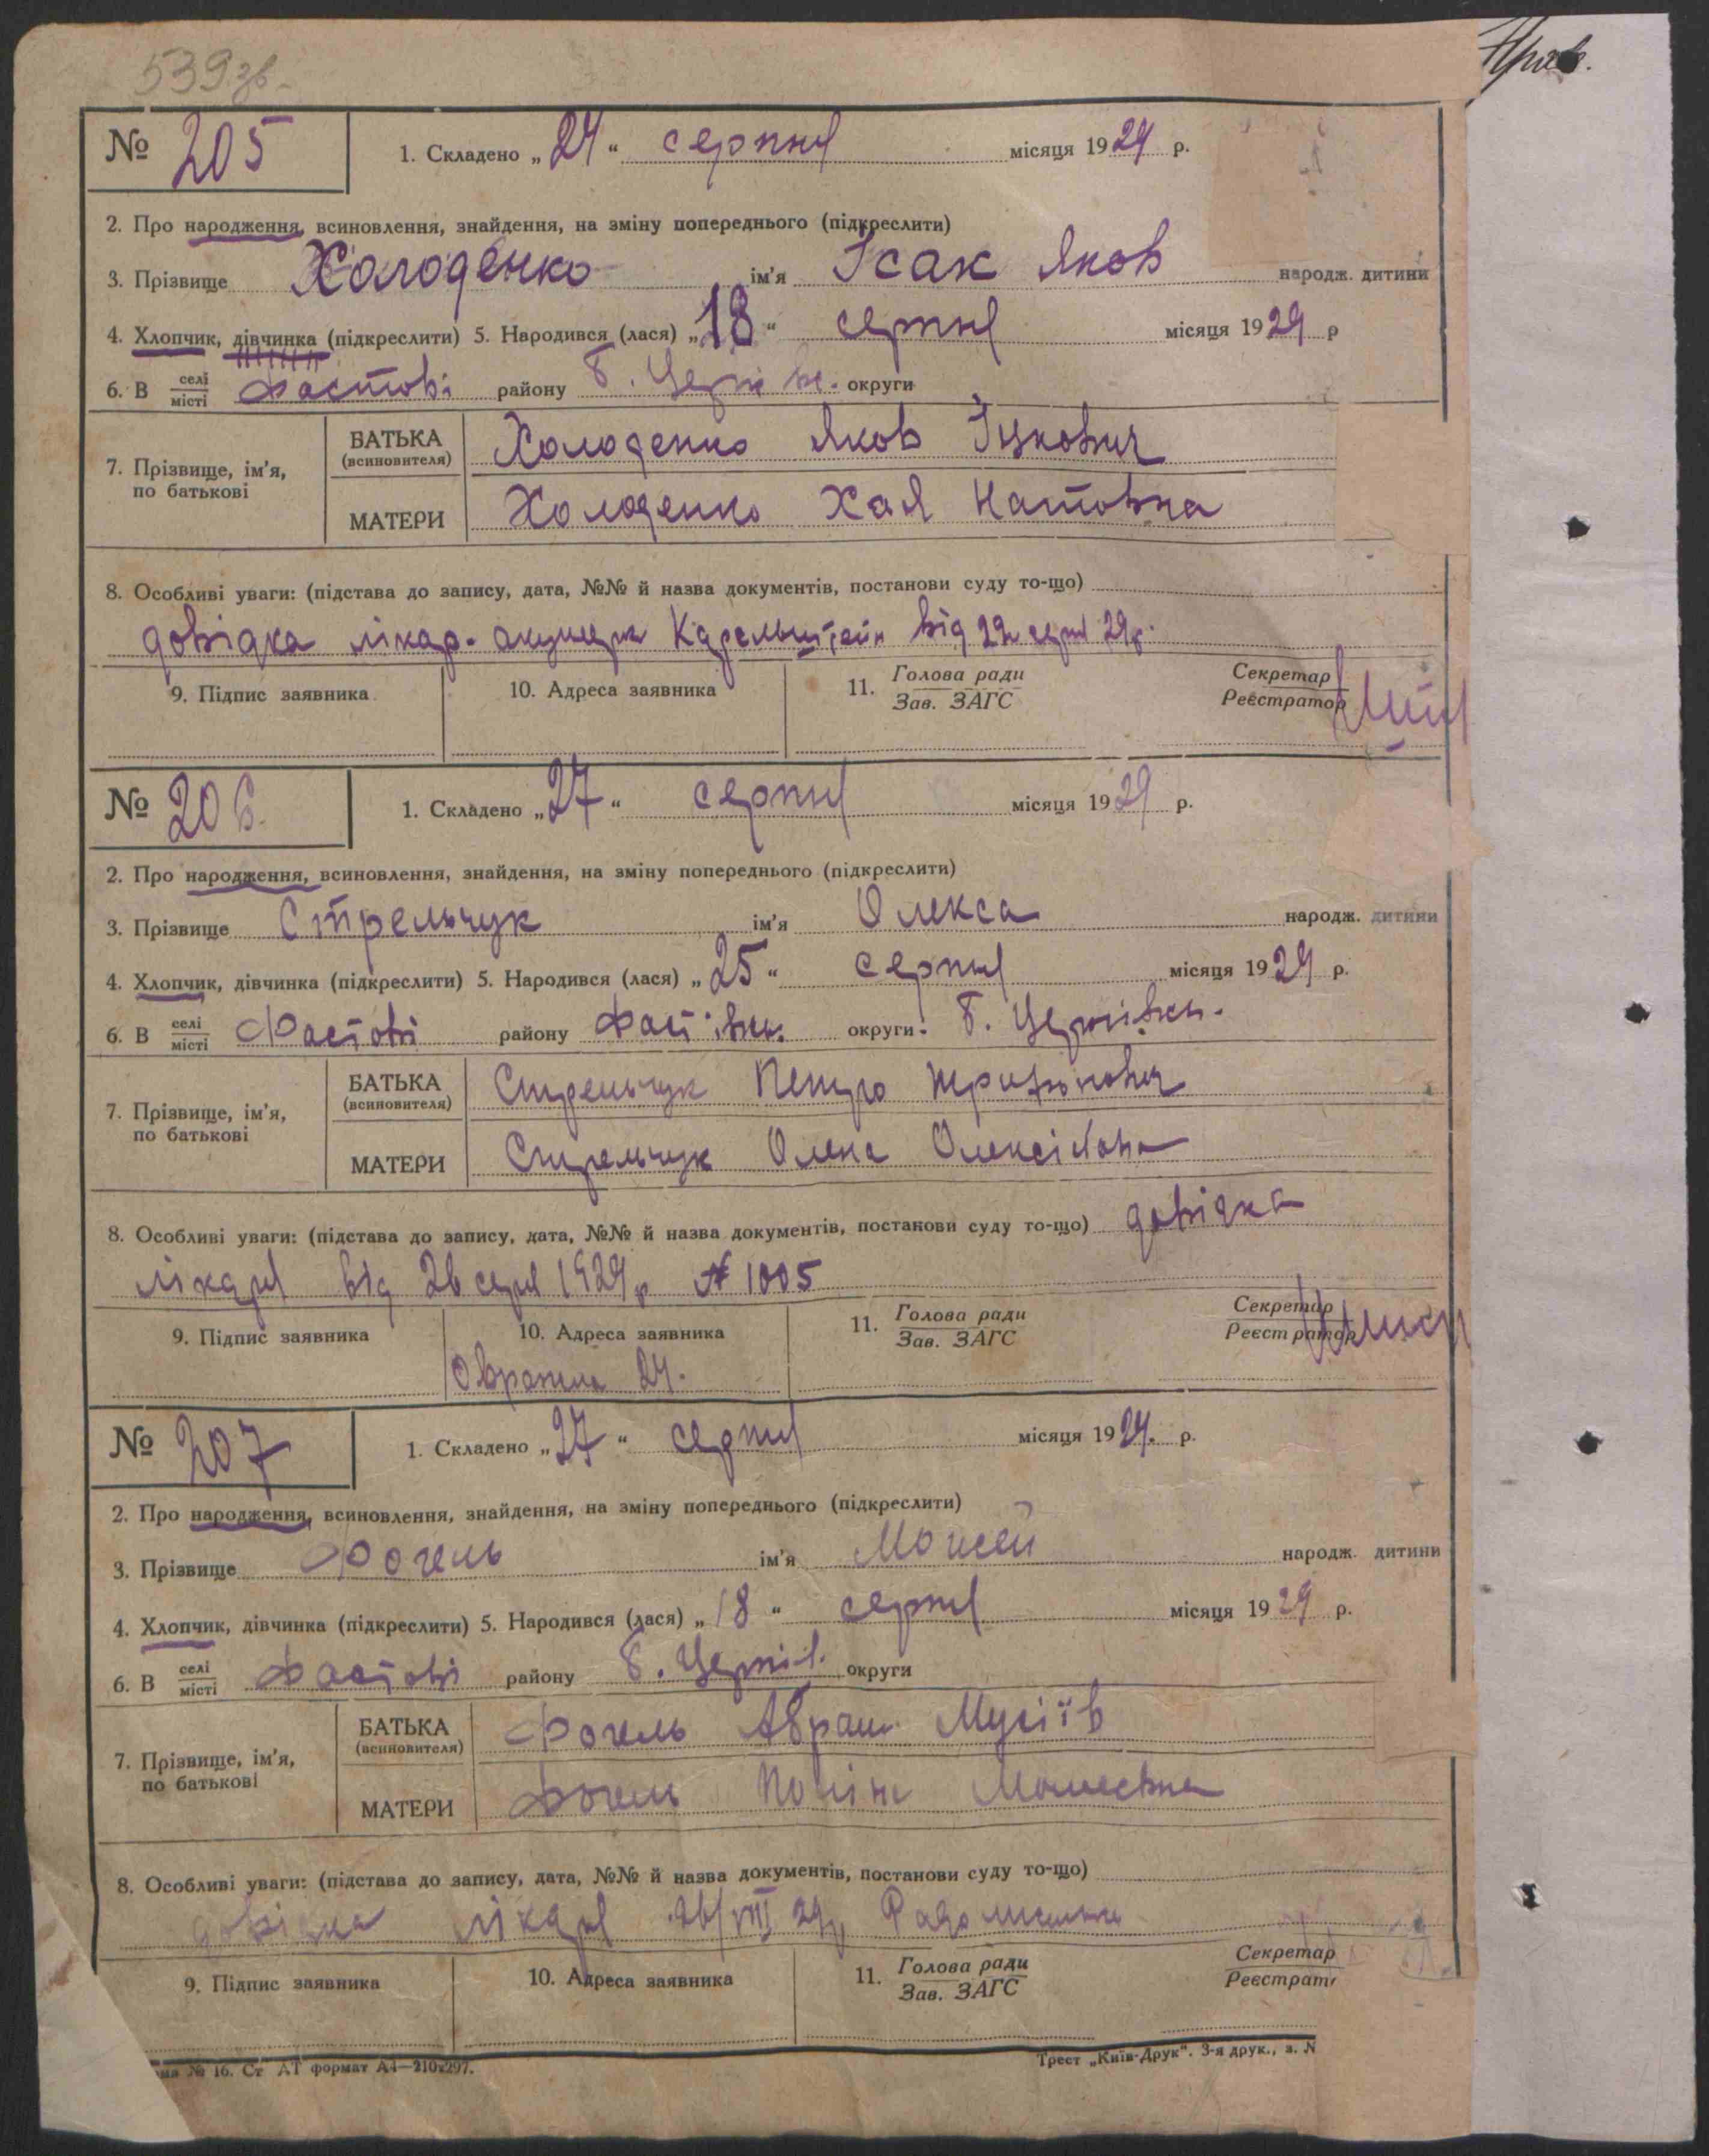 539зв.
Прав.
№ 205 1. Складено „24“ серпня місяця 1929 р.
2. Про народження, всиновлення, знайдення, на зміну попереднього (підкреслити)
3. Прізвище Холоденко ім'я Ісак Яков народж. дитини
4. Хлопчик, дівчинка (підкреслити) 5. Народився (лася) „18“ серпня місяця 1929 р
6. В селі/місті Фастові району Б. Церків. округи
7. Прізвище, ім'я, по батькові
БАТЬКА (всиновителя) Холоденко Яков Іцкович
МАТЕРИ Холоденко Хая
8. Особливі уваги: (підстава до запису, дата, №№ й назва документів, постанови суду то-що)
довідка лікар. від серп 29р.
9. Підпис заявника 10. Адреса заявника 11. Голова ради/Зав. ЗАГС Секретар/Реєстратор
№ 206. 1. Складено „27“ серпня місяця 1929 р.
2. Про народження, всиновлення, знайдення, на зміну попереднього (підкреслити)
3. Прізвище Стрельчук ім'я Олекса народж. дитини
4. Хлопчик, дівчинка (підкреслити) 5. Народився (лася) „25“ серпня місяця 1929 р.
6. В селі/місті Фастові району Фастівськ. округи Б. Церківськ.
7. Прізвище, ім'я, по батькові
БАТЬКА (всиновителя) Стрельчук Петро
МАТЕРИ Стрельчук Олена Олексіївна
8. Особливі уваги: (підстава до запису, дата, №№ й назва документів, постанови суду то-що) довідка
лікаря від 26 серп 1929р № 1005
9. Підпис заявника 10. Адреса заявника 11. Голова ради/Зав. ЗАГС Секретар/Реєстратор
№ 207 1. Складено „27“ серпня місяця 1929. р.
2. Про народження, всиновлення, знайдення, на зміну попереднього (підкреслити)
3. Прізвище Фогель ім'я Мойсей народж. дитини
4. Хлопчик, дівчинка (підкреслити) 5. Народився (лася) „18“ серпня місяця 1929 р.
6. В селі/місті Фастові району Б. Церків. округи
7. Прізвище, ім'я, по батькові
БАТЬКА (всиновителя) Фогель Абрам Мусіїв
МАТЕРИ Фогель Поліна
8. Особливі уваги: (підстава до запису, дата, №№ й назва документів, постанови суду то-що)
довідка лікаря 26/VIII 29р
9. Підпис заявника 10. Адреса заявника 11. Голова ради/Зав. ЗАГС Секретар/Реєстрат
ма № 16. Ст АТ формат А4—210х297. Трест „Київ-Друк“. 3-я друк., з. N